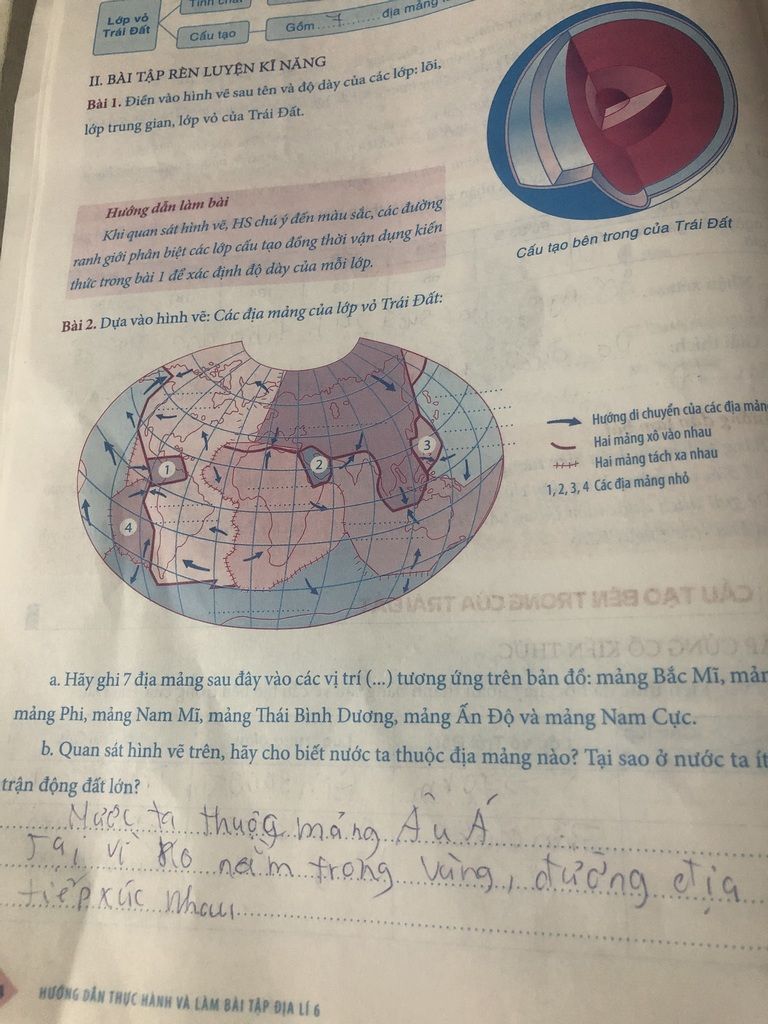 Lớp vỏ
Trái Đất
Tính chất
Cấu tạo
Gồm ....7.... địa mảng
II. BÀI TẬP RÈN LUYỆN KĨ NĂNG
Bài 1. Điền vào hình vẽ sau tên và độ dày của các lớp: lõi,
lớp trung gian, lớp vỏ của Trái Đất.
Hướng dẫn làm bài
Khi quan sát hình vẽ, HS chú ý đến màu sắc, các đường
ranh giới phân biệt các lớp cấu tạo đồng thời vận dụng kiến
thức trong bài 1 để xác định độ dày của mỗi lớp.
Cấu tạo bên trong của Trái Đất
Bài 2. Dựa vào hình vẽ: Các địa mảng của lớp vỏ Trái Đất:
1
2
3
4
Hướng di chuyển của các địa mảng
Hai mảng xô vào nhau
Hai mảng tách xa nhau
1, 2, 3, 4 Các địa mảng nhỏ
a. Hãy ghi 7 địa mảng sau đây vào các vị trí (...) tương ứng trên bản đồ: mảng Bắc Mĩ, mản
mảng Phi, mảng Nam Mĩ, mảng Thái Bình Dương, mảng Ấn Độ và mảng Nam Cực.
b. Quan sát hình vẽ trên, hãy cho biết nước ta thuộc địa mảng nào? Tại sao ở nước ta ít
trận động đất lớn?
Nước ta thuộc mảng Âu Á
Tại vì ko nằm trong vùng, đường địa
tiếp xúc nhau
HƯỚNG DẪN THỰC HÀNH VÀ LÀM BÀI TẬP ĐỊA LÍ 6